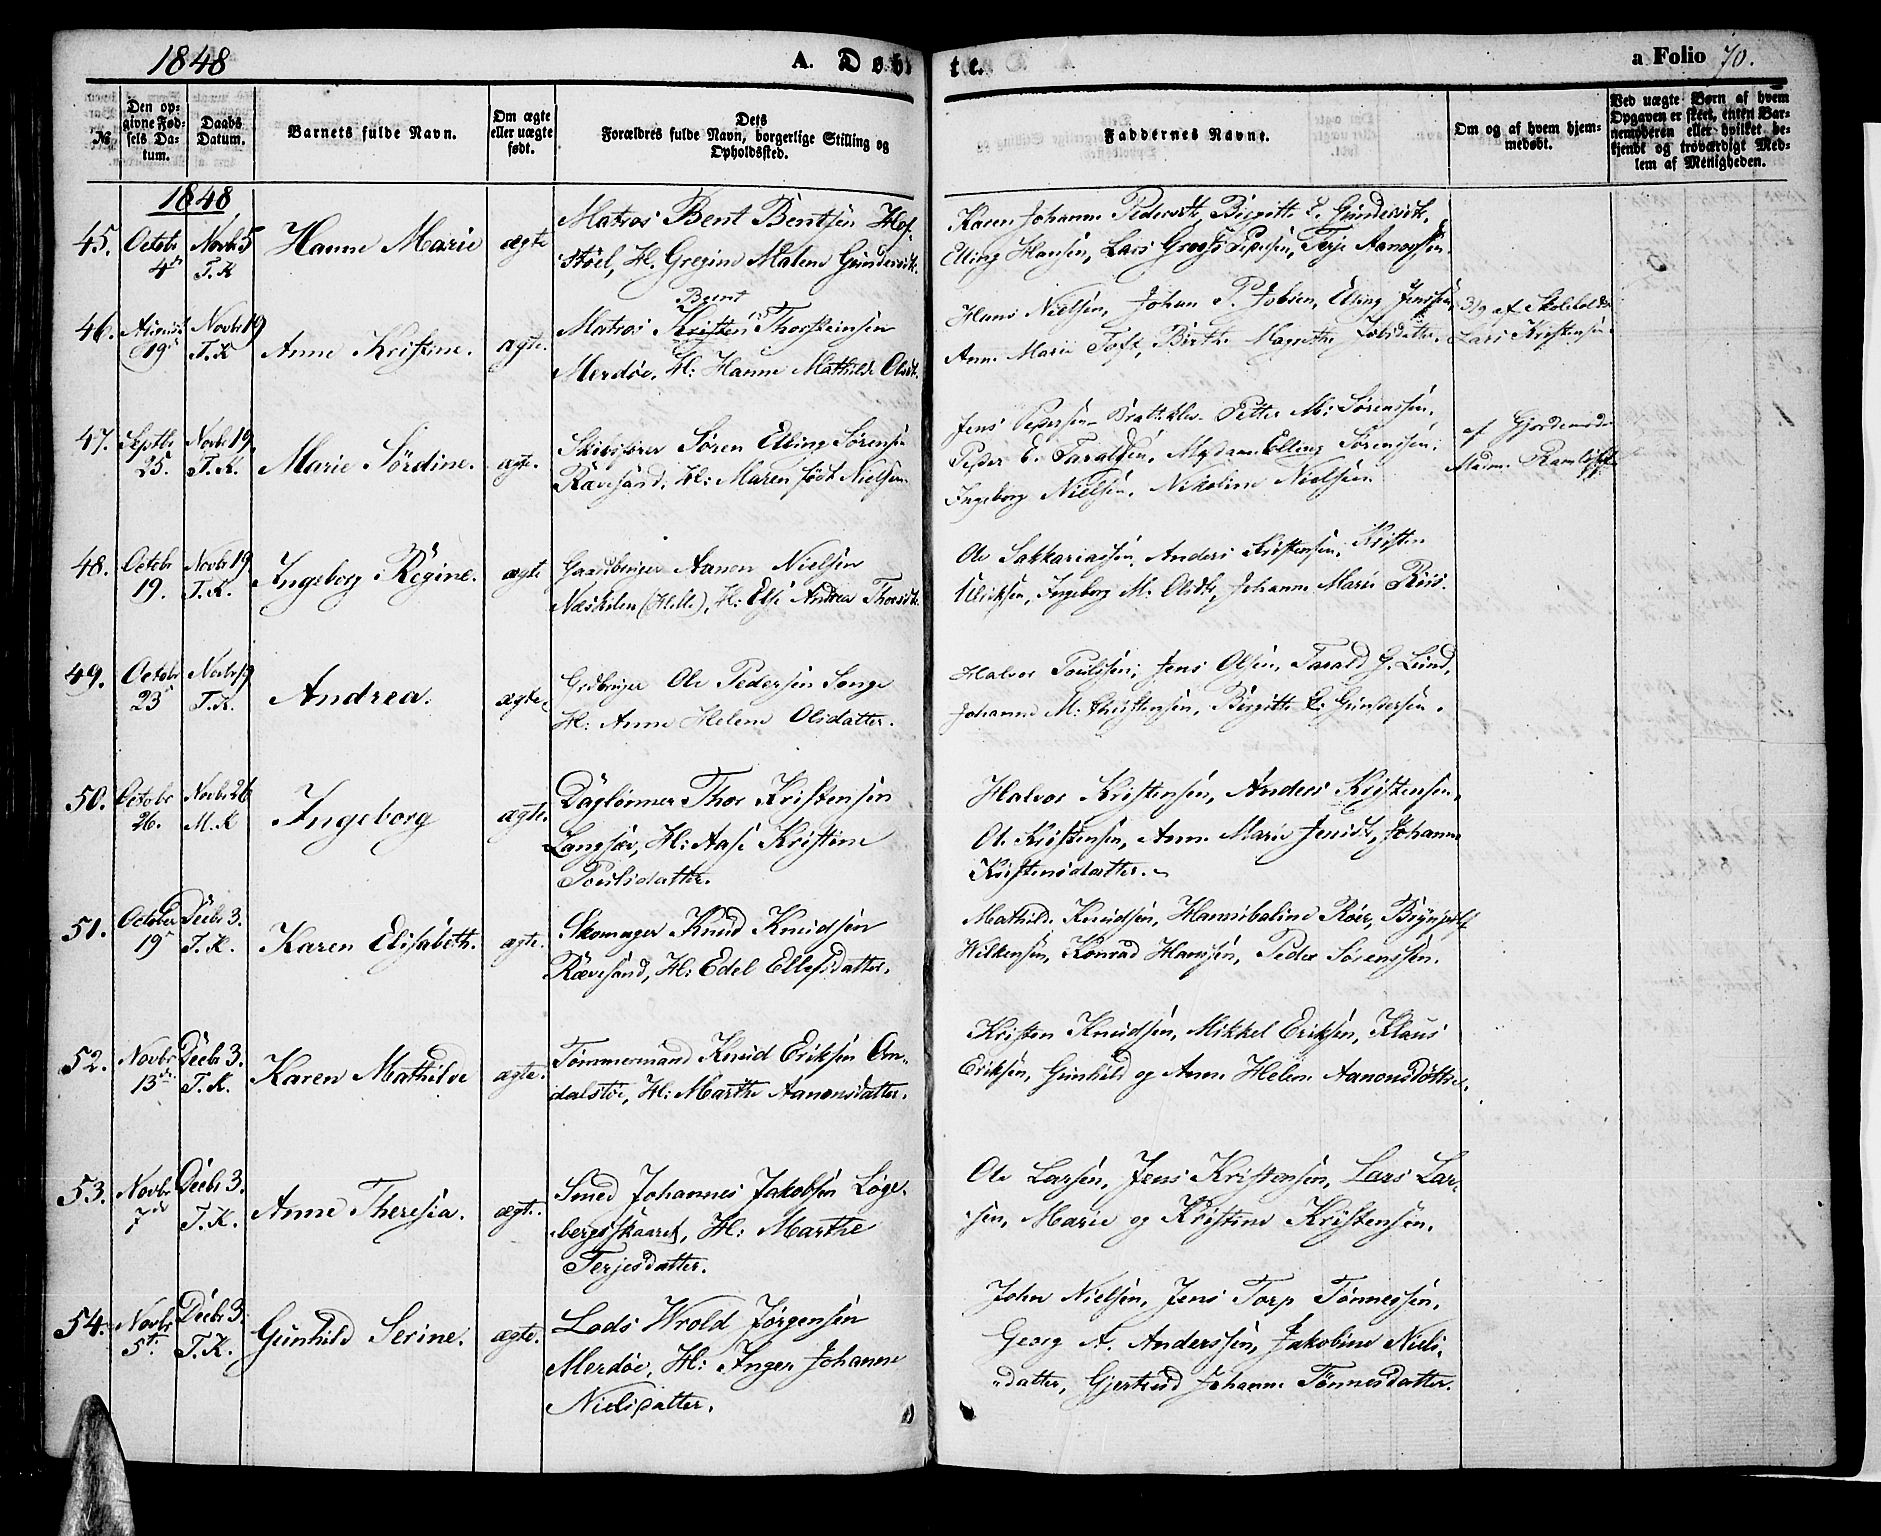 1848 A. Døbte. a Folio 70.
№
Den opgivne Fødsels Datum.
Daabs Datum.
Barnets fulde Navn.
Om ægte eller uægte født.
Dets Forældres fulde Navn, borgerlige Stilling og Opholdssted.
Faddernes Navne.
Om og af hvem hjemmedøbt.
Ved uægte Børn af hvem Opgaven er skeet, enten Barnemoderen eller hvilket bekjendt og troværdigt Medlem af Menigheden.
1848
45. Octobr 4de Novbr 5 T.K Hanne Marie ægte
Matros Bent Bentsen Hof-
støel, H. Gregine Malene Gundersdt.
Karen Johanne Pedersdt, Birgitte E. Gundersdt,
Elling Hansen, Lars Pedersen, Terje Aanonsen.
46. August 19de Novbr 19 T.K Anne Kristine. ægte.
Bernt
Matros Kristen Thorsteinsen
Merdøe, H: Hanne Mathilde Olsdt.
Hans Nielsen, Johan P. Jobsen, Elling Jenssen,
Anne Marie Toft, Birthe Magrethe Jobsdatter.
af Skoleholder
Lars Kristensen
47. Septbr 25. Novbr 19. T.K. Marie Sørdine. ægte.
Skibsfører Søren Elling Sørensen
Rævesand, H: Maren født Nielsen
Jens Pedersen Brattekler. Petter M: Sørenssen,
Peder E. Taraldsen, Madame Elling Sørenssen,
Ingeborg Nielsen, Nikoline Nielsen
af Gjordemoder
Madm. Ramleff
48. Octobr 19. Novbr 19 T.K. Ingeborg Regine. ægte
Gaardbruger Aanon Nielsen
Næskilen (Helle), H: Else Andrea Thorsdt.
Ole Sakkariassen, Anders Kristensen, Kristen
Ulriksen, Ingeborg M. Olsdtr, Johanne Marie Riis.
49. Octobr 23de Novbr 19 T.K. Andrea. ægte.
Grdbruger Ole Pedersen Songe
H: Anne Helene Olsdatter.
Halvor Poulssen, Jens Olsen, Tarald G. Lund,
Johanne M: Christensen, Birgitte E. Gundersen.
50. Octobr 26. Novbr 26 M.K Ingeborg ægte.
Daglønner Thor Kristensen
Langsæv, H: Aase Kristine
Poulsdatter.
Halvor Kristensen, Anders Kristensen,
Ole Kristensen, Anne Marie Jensdt, Johanne
Kristensdatter.
51. October 19de Decbr 3. T.K. Karen Elisabeth. ægte.
Skomager Knud Knudsen
Rævesand, H: Edel Ellefsdatter.
Mathilde Knudsen, Hannibaline Roër, Brynjulf
Wilkensen, Konrad Hanssen, Peder Sørenssen.
52. Novbr 13de Decbr 3. T.K. Karen Mathilde ægte.
Tømmermand Knud Eriksen Om-
dalstøe, H: Marthe Aanonsdatter.
Kristen Knudsen, Mikkel Eriksen, Klaus
Eriksen, Gunhild og Anne Helene Aanonsdøttre.
53. Novbr 7de Decbr 3. T.K. Anne Theresia. ægte.
Smed Johannes Jakobsen Løge-
bergsskaaret, H: Marthe
Terjesdatter.
Ole Larsen, Jens Kristensen, Lars Lar-
sen, Marie og Kristine Kristensen.
54. Novbr 5te Decbr 3. T.K. Gunhild Serine. ægte.
Lods Wrold Jørgensen
Merdøe, H: Inger Johanne
Nielsdatter.
John Nielsen, Jens Torp Tønnessen,
Georg A. Anderssen, Jakobine Niels-
datter, Gjertrud Johanne Tønnesdatter.